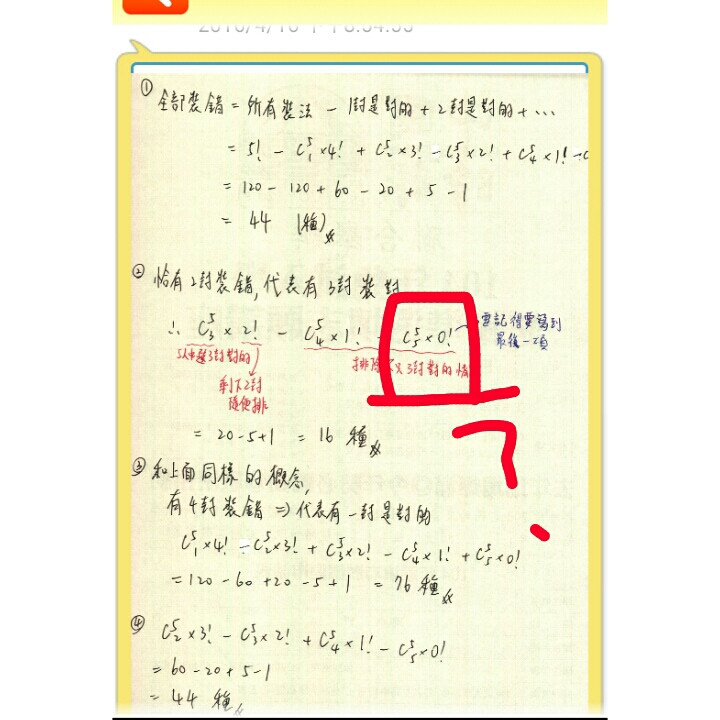 ① 全部裝錯 = 所有裝法 - 1封是對的 + 2封是對的 + ...
= 5! - C⁵₁×4! + C⁵₂×3! - C⁵₃×2! + C⁵₄×1! - C
= 120 - 120 + 60 - 20 + 5 - 1
= 44 (種)
② 恰有2封裝錯, 代表有3封裝對
∴ C⁵₃×2! - C⁵₄×1! C⁵₅×0! 要記得要寫到
最後一項
5火中選3封對的 排除 3封對的情
剩下2封
隨便排
= 20-5+1 = 16 種
③ 和上面同樣的概念,
有4封裝錯 ⇒ 代表有一封是對的
C⁵₁×4! - C⁵₂×3! + C⁵₃×2! - C⁵₄×1! + C⁵₅×0!
= 120 - 60 + 20 - 5 + 1 = 76 種
④ C⁵₂×3! - C⁵₃×2! + C⁵₄×1! - C⁵₅×0!
= 60 - 20 + 5 - 1
= 44 種
?